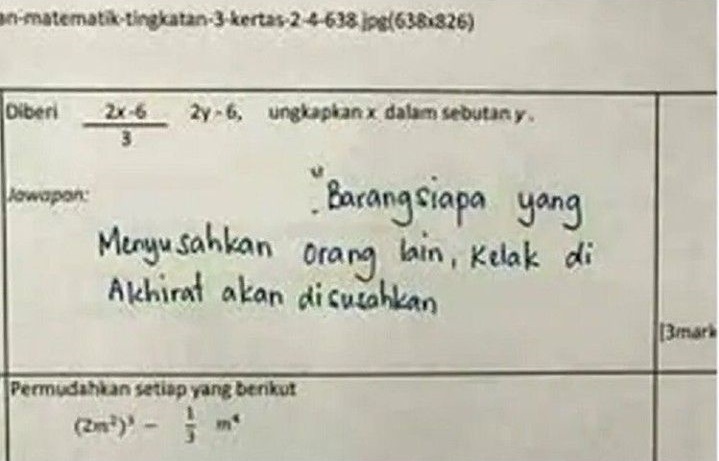 an-matematik-tingkatan-3-kertas-2-4-638.jpg(638x826)
Diberi 2x-6/3 2y-6, ungkapkan x dalam sebutan y.
Jawapan:
"Barangsiapa yang
Menyusahkan orang lain, Kelak di
Akhirat akan disusahkan
[3mark
Permudahkan setiap yang berikut
(2m²)³ - 1/3 m⁴